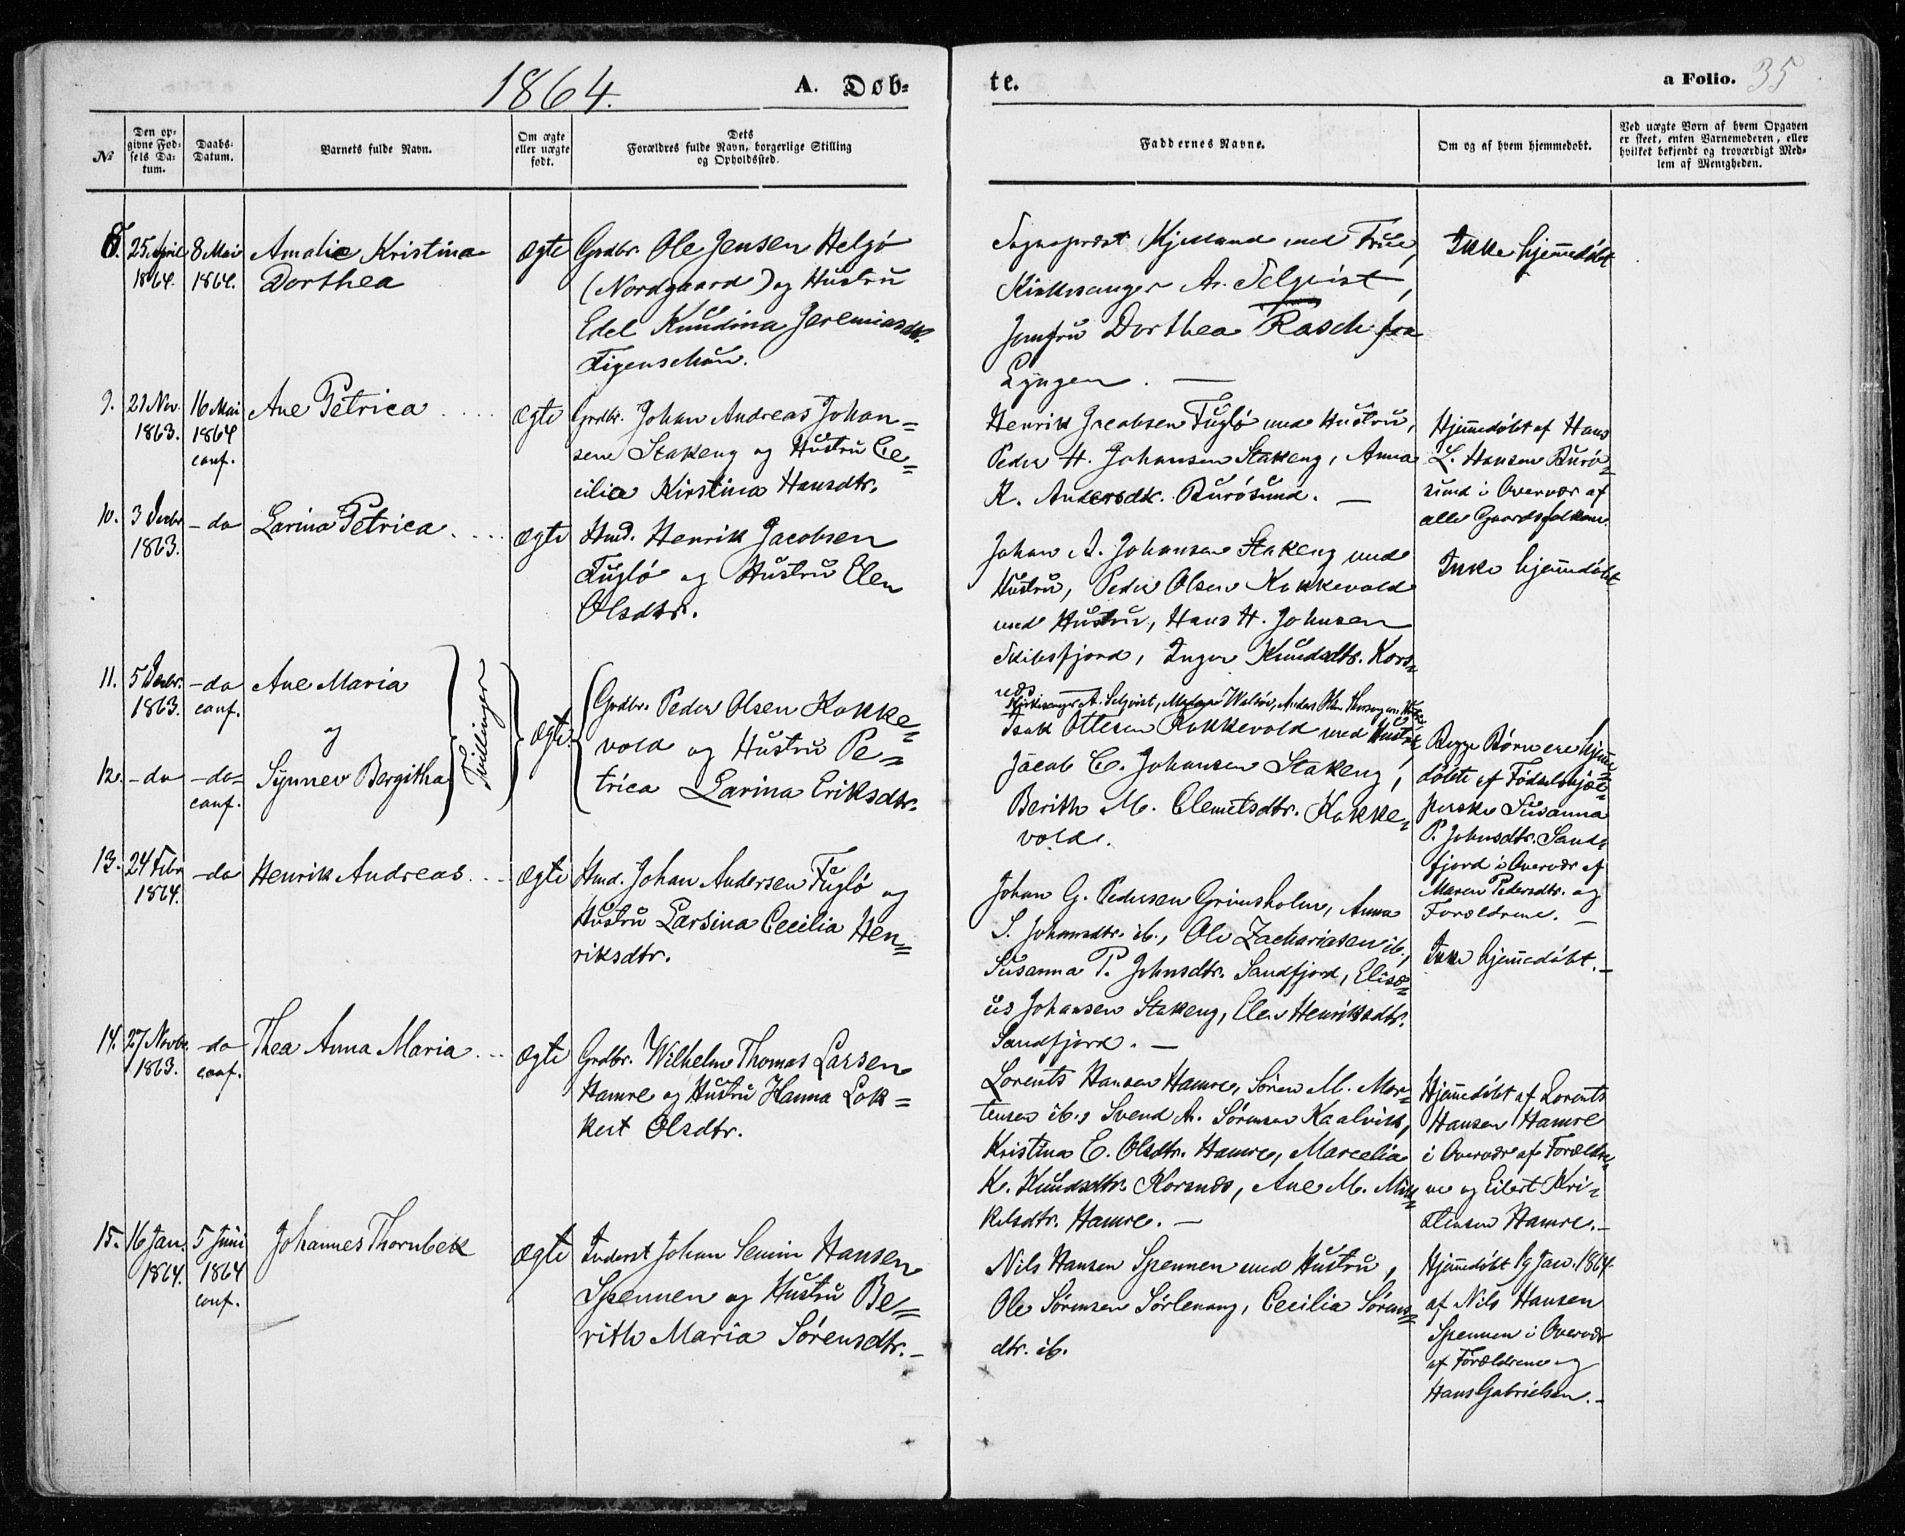 1864.
A. Døb-
te.
a Folio. 35
№
Den op-
givne Fød-
sels Da-
tum.
Daabs-
Datum.
Barnets fulde Navn.
Om ægte
eller uægte
født.
Dets
Forældres fulde Navn, borgerlige Stilling
og Opholdssted.
Faddernes Navne.
Om og af hvem hjemmedøbt.
Ved uægte Børn af hvem Opgaven
er skeet, enten Barnemoderen, eller
hvilket bekjendt og troværdigt Med-
lem af Menigheden.
8.
25 April
1864.
8 Mai
1864.
Amalie Kristina
Dorthea
Ægte
Grdbr. Ole Jensen Helgø
(Nordgaard) og Hustru
Edel Knudina Jeremiasdtr.
Figenschau.
Sognepræst Kjelland med Frue,
Kirkesanger A. Selqvist,
Jomfru Dorthea Rasch fra
Lyngen. —
Ikke hjemmedøbt
9.
21 Nov.
1863.
16 Mai
1864
conf.
Ane Petrica
Ægte
Grdbr. Johan Andreas Johan=
sen Stakeng og Hustru Ce=
cilia Kirstina Hansdtr.
Henrik Jacobsen Fuglø med Hustru,
Peder H. Johansen Stakeng, Anna
K. Andersdtr. Burøsund. —
Hjemmedøbt af Hans
L. Hansen Burø=
sund i Overvær af
alle Gaardsfolkene
10.
3 Decbr
1863.
- do
Larina Petrica
Ægte
Hmd. Henrik Jacobsen
Fuglø og Hustru Elen
Olsdtr.
Johan A. Johansen Stakeng med
Hustru, Peder Olsen Kokkevold
med Hustru, Hans H. Johnsen
Skibsfjord, Inger Knudsdtr. Kors=
næs
Ikke hjemmedøbt
11.
5 Decbr.
1863.
- do
conf.
Ane Maria
og
12.
- do
- do-
conf.
Synnev Bergitha
Tvillinger
Ægte
Grdbr. Peder Olsen Kokke=
vold og Hustru Pe=
trica Larina Eriksdtr.
Kirkesanger A. Selqvist,
Isak Ottesen Kokkevold med Hustru,
Jacob C. Johansen Stakeng,
Berith M. Clemetsdtr. Kokke=
vold.
Begge Børn ere hjem=
døbte af Fødselshjæl=
perske Susanna
P. Johnsdtr. Sand=
fjord i Overvær af
Maren Pedersdtr. og
Forældrene. —
13.
24 Febr
1864.
- do
Henrik Andreas
Ægte
Hmd. Johan Andersen Fuglø og
Hustru Larsina Cecilia Hen=
riksdtr.
Johan G. Pedersen Grimsholm, Anna
S. Johansdtr. ib., Ole Zachariasen ib.,
Susanna P. Johnsdtr. Sandfjord, Elisæ=
us Johansen Stakeng, Elen Henriksdtr.
Sandfjord. —
Ikke hjemmedøbt. -
14.
27 Novbr.
1863.
- do
conf.
Thea Anna Maria
Ægte
Grdbr. Wilhelm Thomas Larsen
Hamre og Hustru Hanna Lok=
kert Olsdtr.
Lorents Hansen Hamre, Søren M. Mor=
tensen ib., Svend A. Sørensen Kaalvik,
Kristina E. Olsdtr. Hamre, Marcelia
K. Knudsdtr. Korsnæs, Ane M. Mik=
kelsdtr. Hamre. —
Hjemmedøbt af Lorents
Hansen Hamre
i Overvær af Forældre=
ne og Eilert Kri=
stensen Hamre. -
15.
16 Jan.
1864.
5 Juni
1864
conf.
Johannes Thornbek
Ægte
Inderst Johan Hansen
Spennen og Hustru Be=
rith Maria Sørensdtr. -
Nils Hansen Spennen med Hustru,
Ole Sørensen Sørlenang, Cecilia Sørens=
dtr. ib.
Hjemmedøbt 19 Jan. 1864
af Nils Hansen
Spennen i Overvær
af Forældrene og
Hans Gabrielsen. -